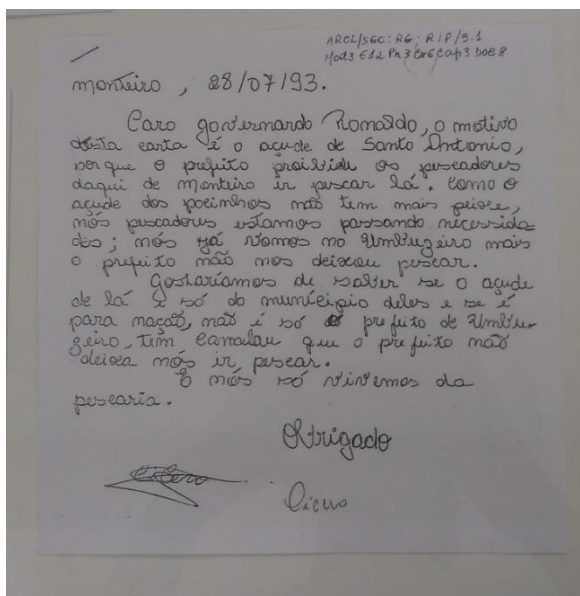 ARCL/SGC: RG: RIP/3.1
Mod3 E12 Pa3 Cap3 DOC8
monteiro, 28/07/93.
Caro governardo Ronaldo, o motivo
desta carta é o açude de Santo Antonio,
porque o prefeito proibido os pescadores
daqui de monteiro ir pescar lá. Como o
açude dos pocinhos não tem mais peixe,
nós pescadores estamos passando necessida
des; nós já vomos no Umbuzeiro mais
o prefeito não nos deixou pescar.
Gostaríamos de saber se o açude
de lá é só do município deles e se é
para nação, não é só o prefeito de Umbu-
zeiro, têm Camalau que o prefeito não
deixa nós ir pescar.
E nós só vivemos da
pescaria.
Obrigado
Cicero
Cicero